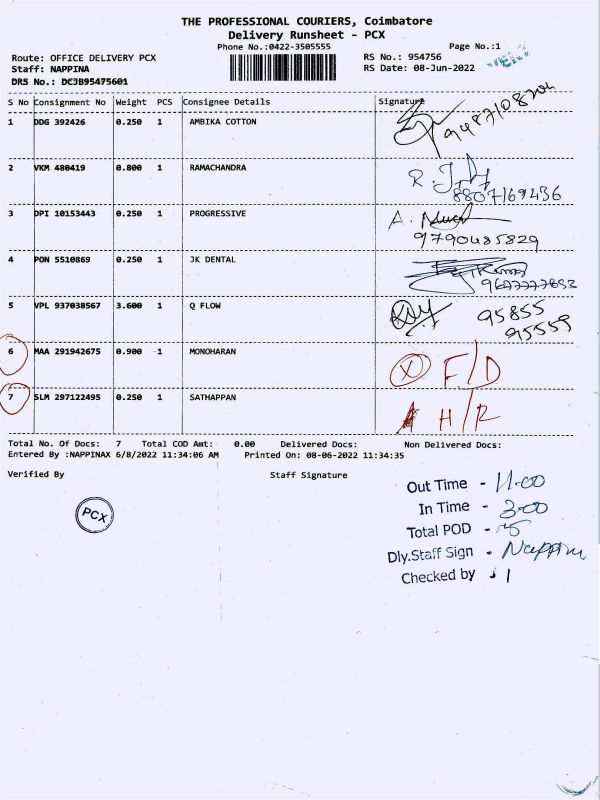 THE PROFESSIONAL COURIERS, Coimbatore
Delivery Runsheet - PCX
Phone No.:0422-3505555
Page No.:1
Route: OFFICE DELIVERY PCX
RS No.: 954756
Staff: NAPPINA
RS Date: 08-Jun-2022
DRS No.: DCJB95475601
S No Consignment No Weight PCS Consignee Details Signature
1 DDG 392426 0.250 1 AMBIKA COTTON
2 VKM 480419 0.800 1 RAMACHANDRA
8807169436
3 DPI 10153443 0.250 1 PROGRESSIVE A.
9790485829
4 PON 5510869 0.250 1 JK DENTAL
5 VPL 937038567 3.600 1 Q FLOW 95855
95559
6 MAA 291942675 0.900 1 MONOHARAN X F/D
7 SLM 297122495 0.250 1 SATHAPPAN H/R
Total No. Of Docs: 7 Total COD Amt: 0.00 Delivered Docs: Non Delivered Docs:
Entered By :NAPPINAX 6/8/2022 11:34:06 AM Printed On: 08-06-2022 11:34:35
Verified By Staff Signature
PCX
Out Time - 11.00
In Time - 3.00
Total POD - 5
Dly.Staff Sign - Nappina
Checked by -